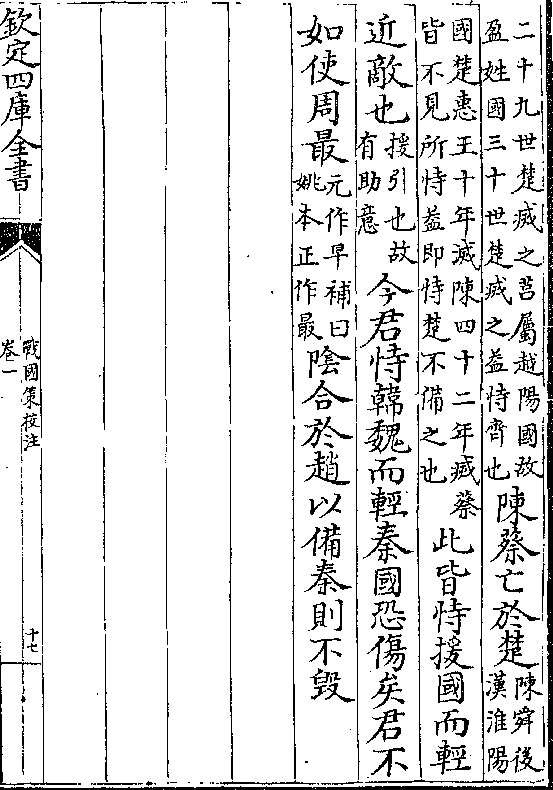 二十九世楚滅之莒屬越陽國故
盈姓國三十世楚滅之益恃齊也
陳蔡亡於楚
陳舜後
漢淮陽
國楚惠王十年滅陳四十二年滅蔡
皆不見所恃益即恃楚不備之也
此皆恃援國而輕
近敵也
援引也故
有助意
今君恃韓魏而輕秦國恐傷矣君不
如使周最
元作早補曰
姚本正作最
陰合於趙以備秦則不毀
欽定四庫全書
戰國策校注
卷一
十七